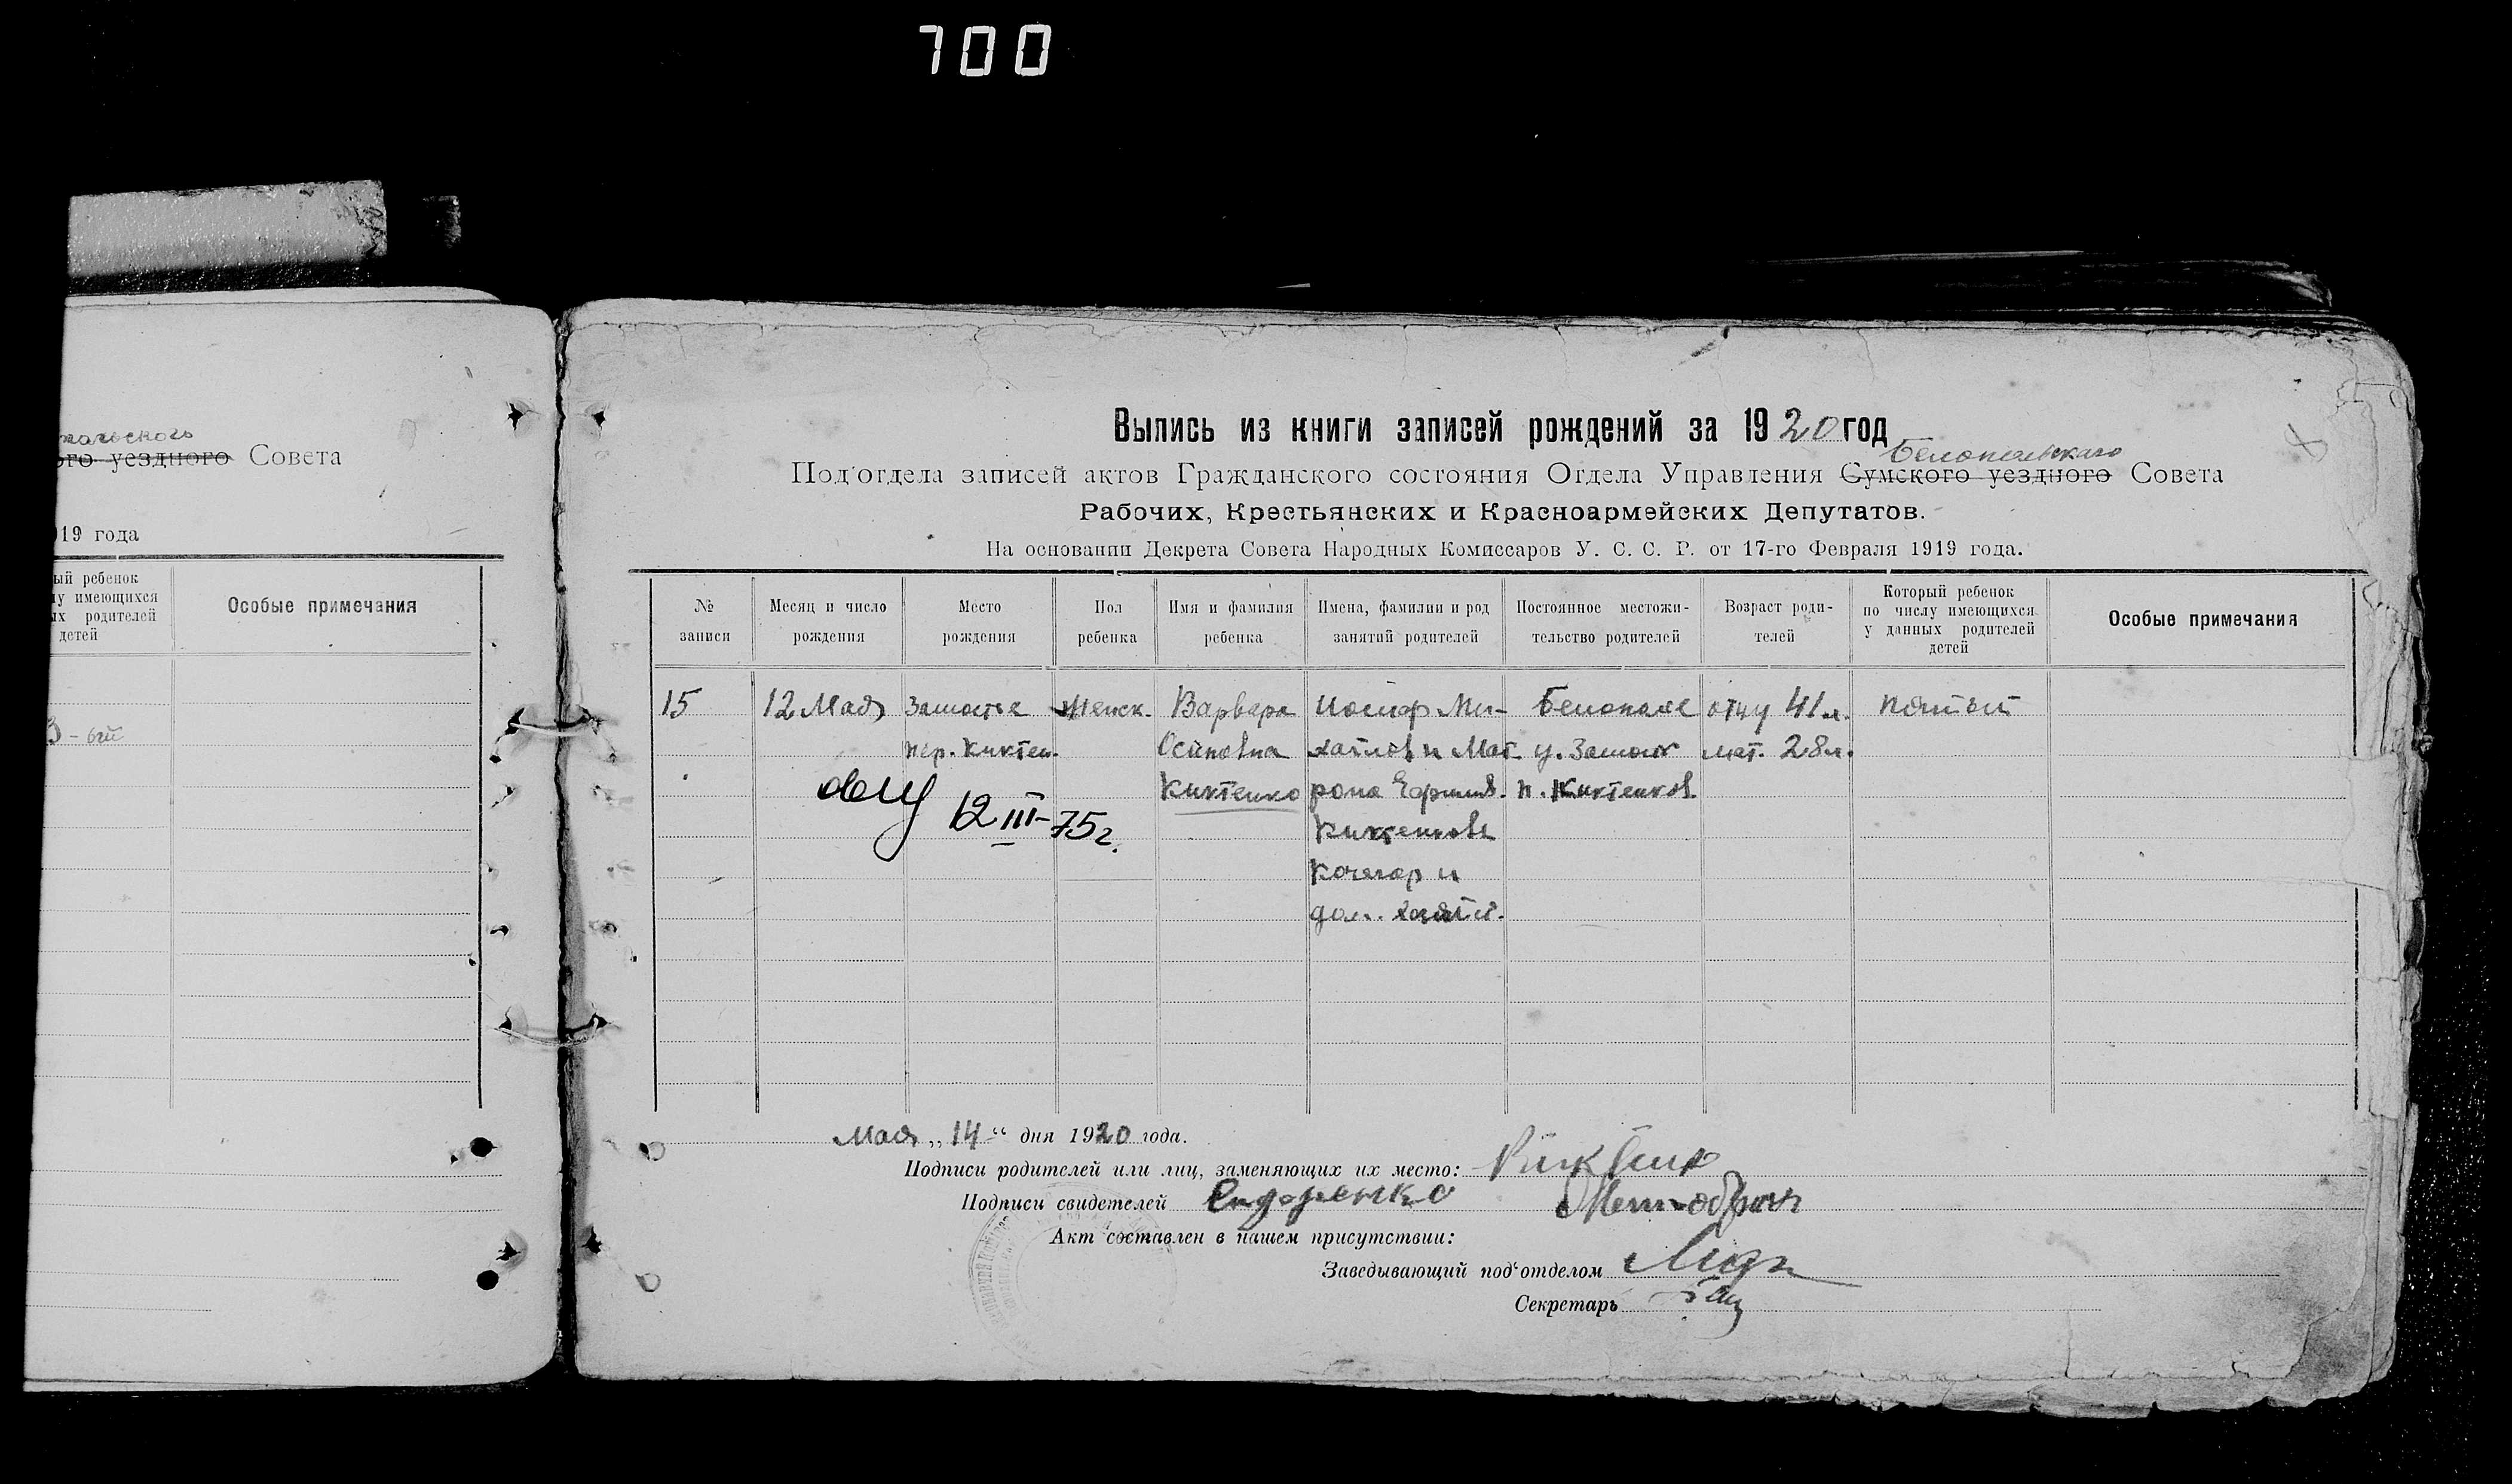 700
польского
ого уездного Совета
919 года
ый ребенок
у имеющихся
ых родителей
детей
Особые примечания
3-ый
Выпись из книги записей рождений за 1920 год
Белопольскаго
Под'отдела записей актов Гражданского состояния Отдела Управления Сумского уездного Совета
Рабочих, Крестьянских и Красноармейских Депутатов.
На основании Декрета Совета Народных Комиссаров У. С. С. Р. от 17-го Февраля 1919 года.
№ записи
Месяц и число рождения
Место рождения
Пол ребенка
Имя и фамилия ребенка
Имена, фамилии и род занятий родителей
Постоянное местожительство родителей
Возраст родителей
Который ребенок по числу имеющихся у данных родителей детей
Особые примечания
15 12 Мая Замостье Женск. Варвара Иосиф Ми- Белополье отцу 41 л. пятый
пер. Киктен. Осиповна хайлов и Мат- у. Замост мат. 28 л.
Киктенко рона Ефимов. п. Киктенков.
12 III-75 г.
Киктенковы
Кочегар и
дом. хозяй.
Мая „14“ дня 1920 года.
Подписи родителей или лиц, заменяющих их место: Киктенко
Подписи свидетелей Сидоренко
Акт составлен в нашем присутствии:
Заведывающий под'отделом
Секретарь